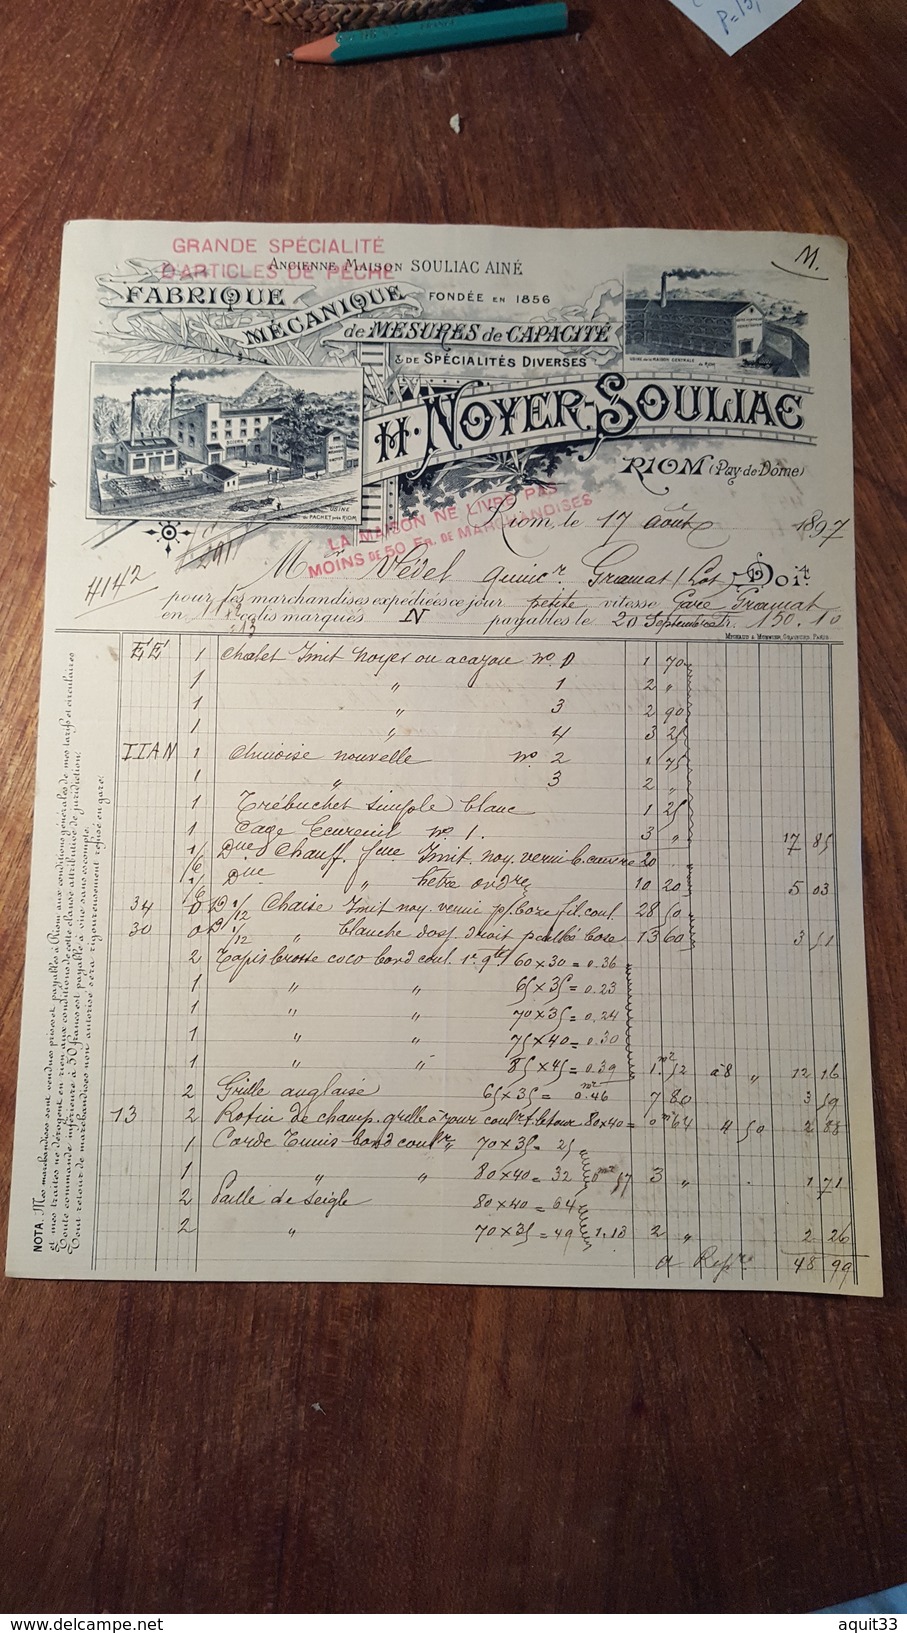 M.
GRANDE SPÉCIALITÉ
D'ARTICLES DE PÊCHE
ANCIENNE MAISON SOULIAC AINÉ
FONDÉE EN 1856
FABRIQUE
MÉCANIQUE
de MESURES de CAPACITÉ
& DE SPÉCIALITÉS DIVERSES
USINE de la MAISON CENTRALE de RIOM
H. NOYER-SOULIAC
RIOM (Puy-de-Dôme)
USINE
du PACHET près RIOM
LA MAISON NE LIVRE PAS
MOINS DE 50 FR. DE MARCHANDISES
Riom, le 17 août 1897
4142
Mr Védel quincr Gramat (Lot) Doit
pour les marchandises expédiées ce jour petite vitesse Gare Gramat
en colis marqués N payables le 20 Septembre fr. 150.10
EE 1 Chalet Imit noyer ou acajou no 0 1 70
1 " 1 2 "
1 " 3 2 90
1 " 4 3 25
IIAN 1 Chinoise nouvelle no 2 1 75
1 " 3 2 "
1 Trébuchet simple blanc 1 25
1 Cage Ecureuil no 1. 3 " 17 85
1/6 Dne Chauff. fme Imit. noy. verni b. cuivre 20 "
1/6 Dne " hêtre 10 20 5 03
34 1/12 Chaise Imit noy. verni p/ boxe fil. coul. 28 50
30 1/12 " blanche dos droit boxe 13 60 3 51
2 Tapis brosse coco bord coul. 1e qté 60 x 30 = 0.36
1 " " 65 x 35 = 0.23
1 " " 70 x 35 = 0.24
1 " " 75 x 40 = 0.30
1 " " 85 x 45 = 0.39 1.m2 52 à 8 " 12 16
2 Grille anglaise 65 x 35 = 0.m2 46 7 80 3 59
13 2 Rotin de champ. grille à jour coul. 80 x 40 = 0m2 64 4 50 2 88
1 Corde Tunis bord coulr 70 x 35 = 25
1 " " 80 x 40 = 32 0m2 57 3 " 1 71
2 Paille de seigle 80 x 40 = 64
2 " 70 x 35 = 49 1.13 2 " 2 26
à Repr 48 99
NOTA. Mes marchandises sont vendues prises et payables à Riom aux conditions générales de mes tarifs et circulaires
et mes traites ne dérogent en rien aux conditions de cette clause attributive de juridiction.
Toute commande inférieure à 50 francs est payable à vue sans escompte.
Tout retour de marchandises non autorisé sera rigoureusement refusé en gare.
aquit33